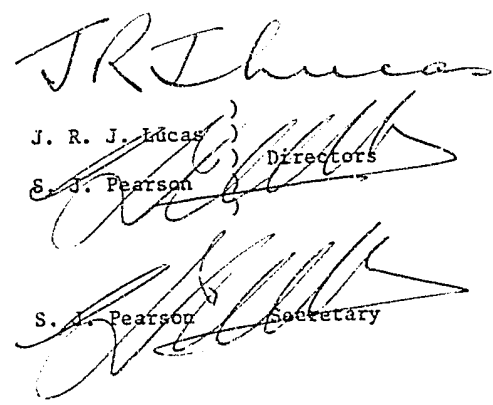 J R J Lucas
J. R. J. Lucas )
) Directors
S. J. Pearson )
S. J. Pearson Secretary